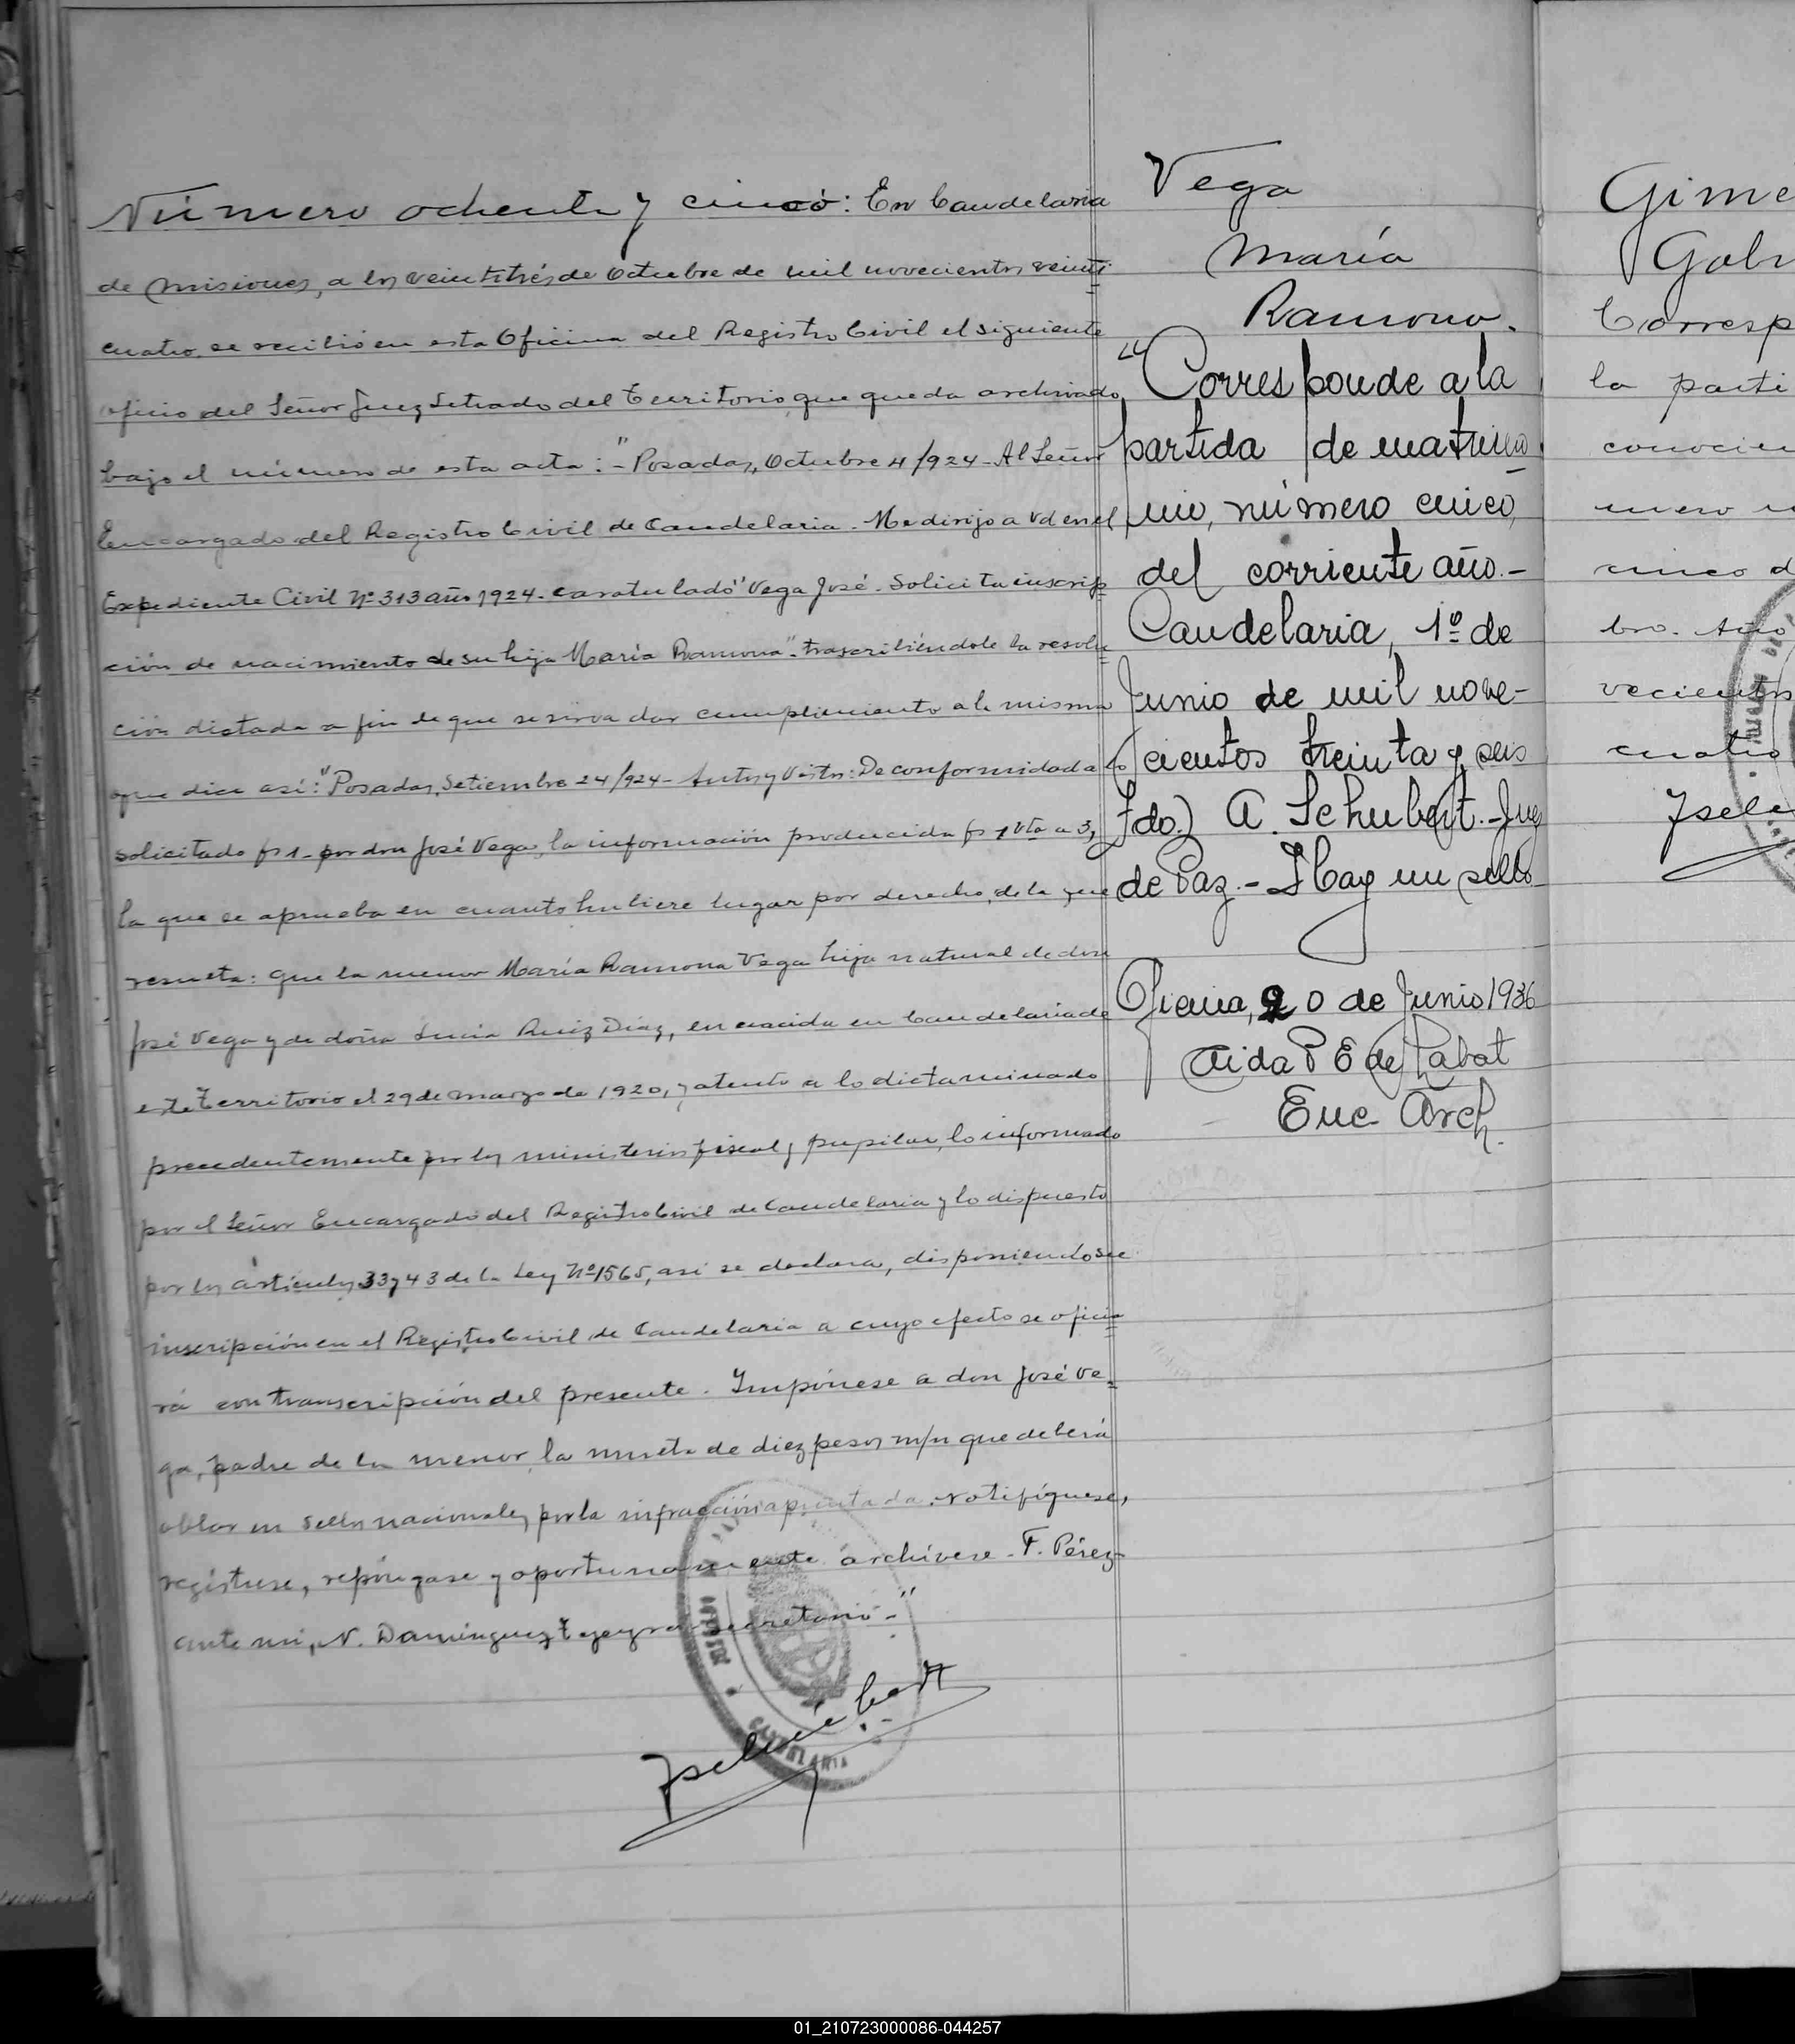 Número ochenta y cinco: En Candelaria
de Misiones, a los veintitrés de Octubre de mil novecientos veinti
cuatro, se recibió en esta Oficina del Registro Civil el siguiente
oficio del Señor Juez Letrado del Territorio que queda archivado
bajo el número de esta acta: "Posadas, Octubre 4/924- Al Señor
Encargado del Registro Civil de Candelaria. Me dirijo a Vd en el
Expediente Civil Nº 313 año 1924. caratulado "Vega José. Solicita inscrip
ción de nacimiento de su hija María Ramona". trascribiéndole la resolu
ción dictada a fin de que se sirva dar cumplimiento a la misma
que dice así: "Posadas, Setiembre 24/924- Autos y Vistos: De conformidad a lo
solicitado fs 1- por don José Vega, la información producida fs 1 vta a 3,
la que se aprueba en cuanto hubiere lugar por derecho, de la que
resulta: que la menor María Ramona Vega hija natural de don
José Vega y de doña Lucía Ruiz Díaz, es nacida en Candelaria de
este Territorio el 29 de Marzo de 1920, y atento a lo dictaminado
precedentemente por los ministerios fiscal y pupilar, lo informado
por el Señor Encargado del Registro Civil de Candelaria y lo dispuesto
por los artículos 33 y 43 de la Ley Nº 1565, así se declara, disponiendo su
inscripción en el Registro Civil de Candelaria a cuyo efecto se oficia
rá con transcripción del presente. Impónese a don José Ve-
ga, padre de la menor, la multa de diez pesos m/n que deberá
oblar en sellos nacionales por la infracción apuntada. Notifíquese,
regístrese, repóngase y oportunamente archívese. F. Pérez
ante mi, N. Domínguez Teyeyra secretario-"
JSchubert
CANDELARIA
Vega
María
Ramona.
"Corresponde a la
partida de matrimo
nio, número cinco,
del corriente año.-
Candelaria, 1º de
Junio de mil nove-
cientos treinta y seis
fdo.) A. Schubert. Juez
de Paz.- Hay un sello
Oficina, 20 de Junio 1936
Aida P E de Labat
Enc Arch.
Gime
Gabr
Corresp
la parti
conocim
mero
cinco d
bro. Año
vecientos
cuatro
JSchu
01_210723000086-044257